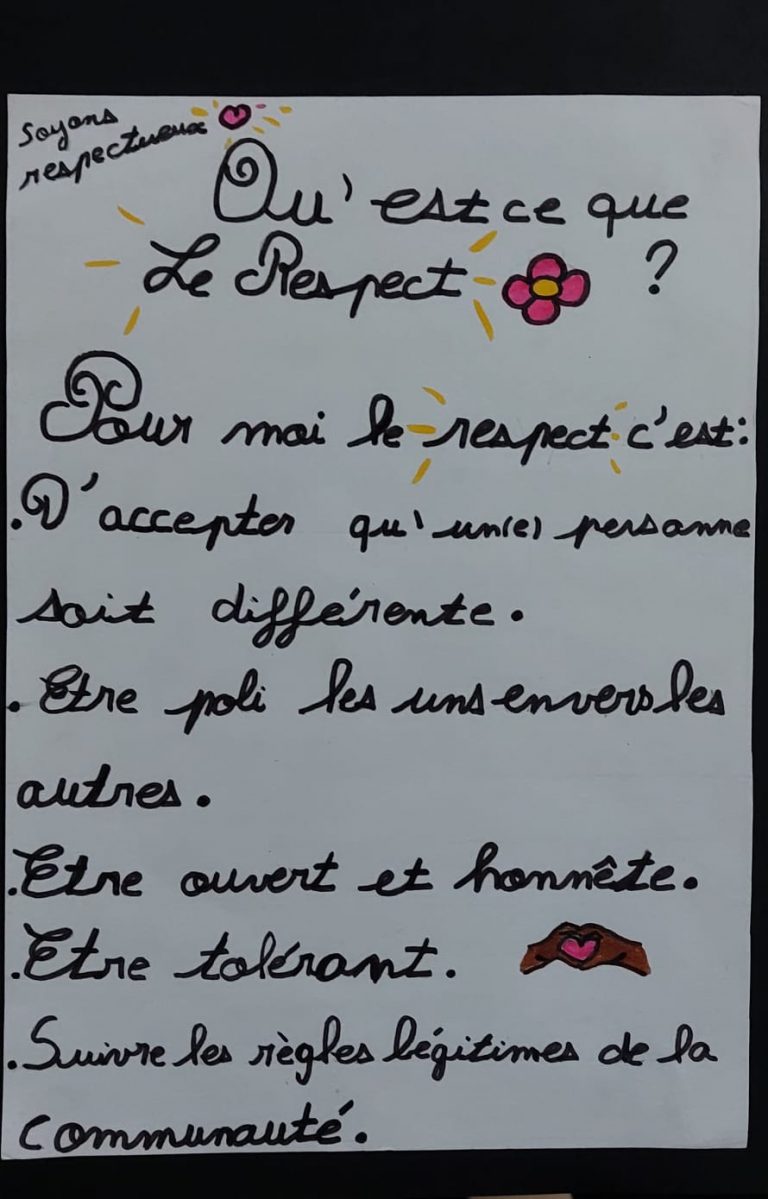 Soyons
respectueux
Qu'est ce que
Le Respect ?
Pour moi le respect c'est:
.D'accepter qu'un(e) personne
soit différente.
. Etre poli les uns envers les
autres.
.Etre ouvert et honnête.
.Etre tolérant.
.Suivre les règles légitimes de la
communauté.